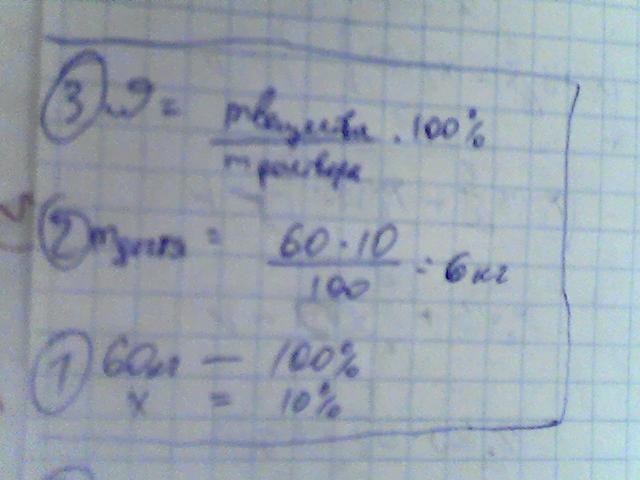 ③ ω = m вещества / m раствора · 100%
② m = 60 · 10 / 100 = 6 кг
① 60 — 100%
x = 10%